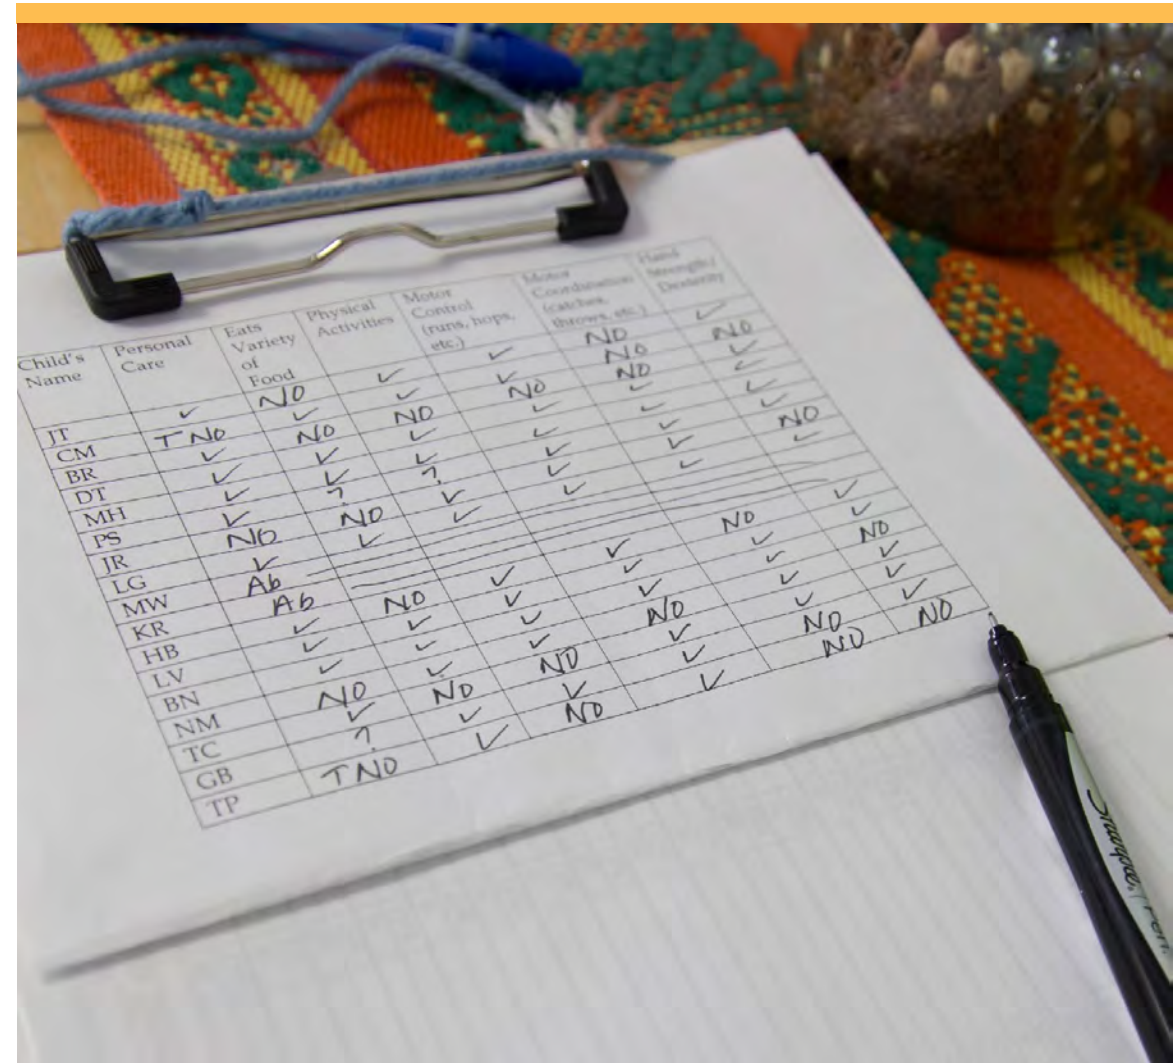 Child's Name Personal Care Eats Variety of Food Physical Activities Motor Control (runs, hops, etc.) Motor Coordination (catches, throws, etc.) Hand Strength/ Dexterity
JT ✓ NO ✓ ✓ NO ✓
CM T NO ✓ ✓ ✓ NO NO
BR ✓ NO NO NO NO ✓
DT ✓ ✓ ✓ ✓ ✓ ✓
MH ✓ ✓ ✓ ✓ ✓ ✓
PS ✓ ? ? ✓ ✓ ✓
JR NO NO ✓ ✓ ✓ NO
LG ✓ ✓ ✓ ✓ ✓ ✓
MW Ab
KR Ab
HB ✓ NO ✓ ✓ NO ✓
LV ✓ ✓ ✓ ✓ ✓ ✓
BN ✓ ✓ ✓ ✓ ✓ NO
NM NO ✓ ✓ NO ✓ ✓
TC ✓ NO NO ✓ ✓ ✓
GB ? ✓ ✓ ✓ NO ✓
TP T NO ✓ NO ✓ NO NO